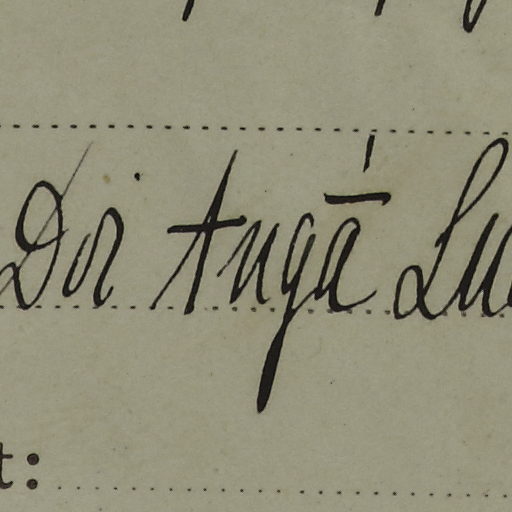 Doi Angā́ Lu
t: